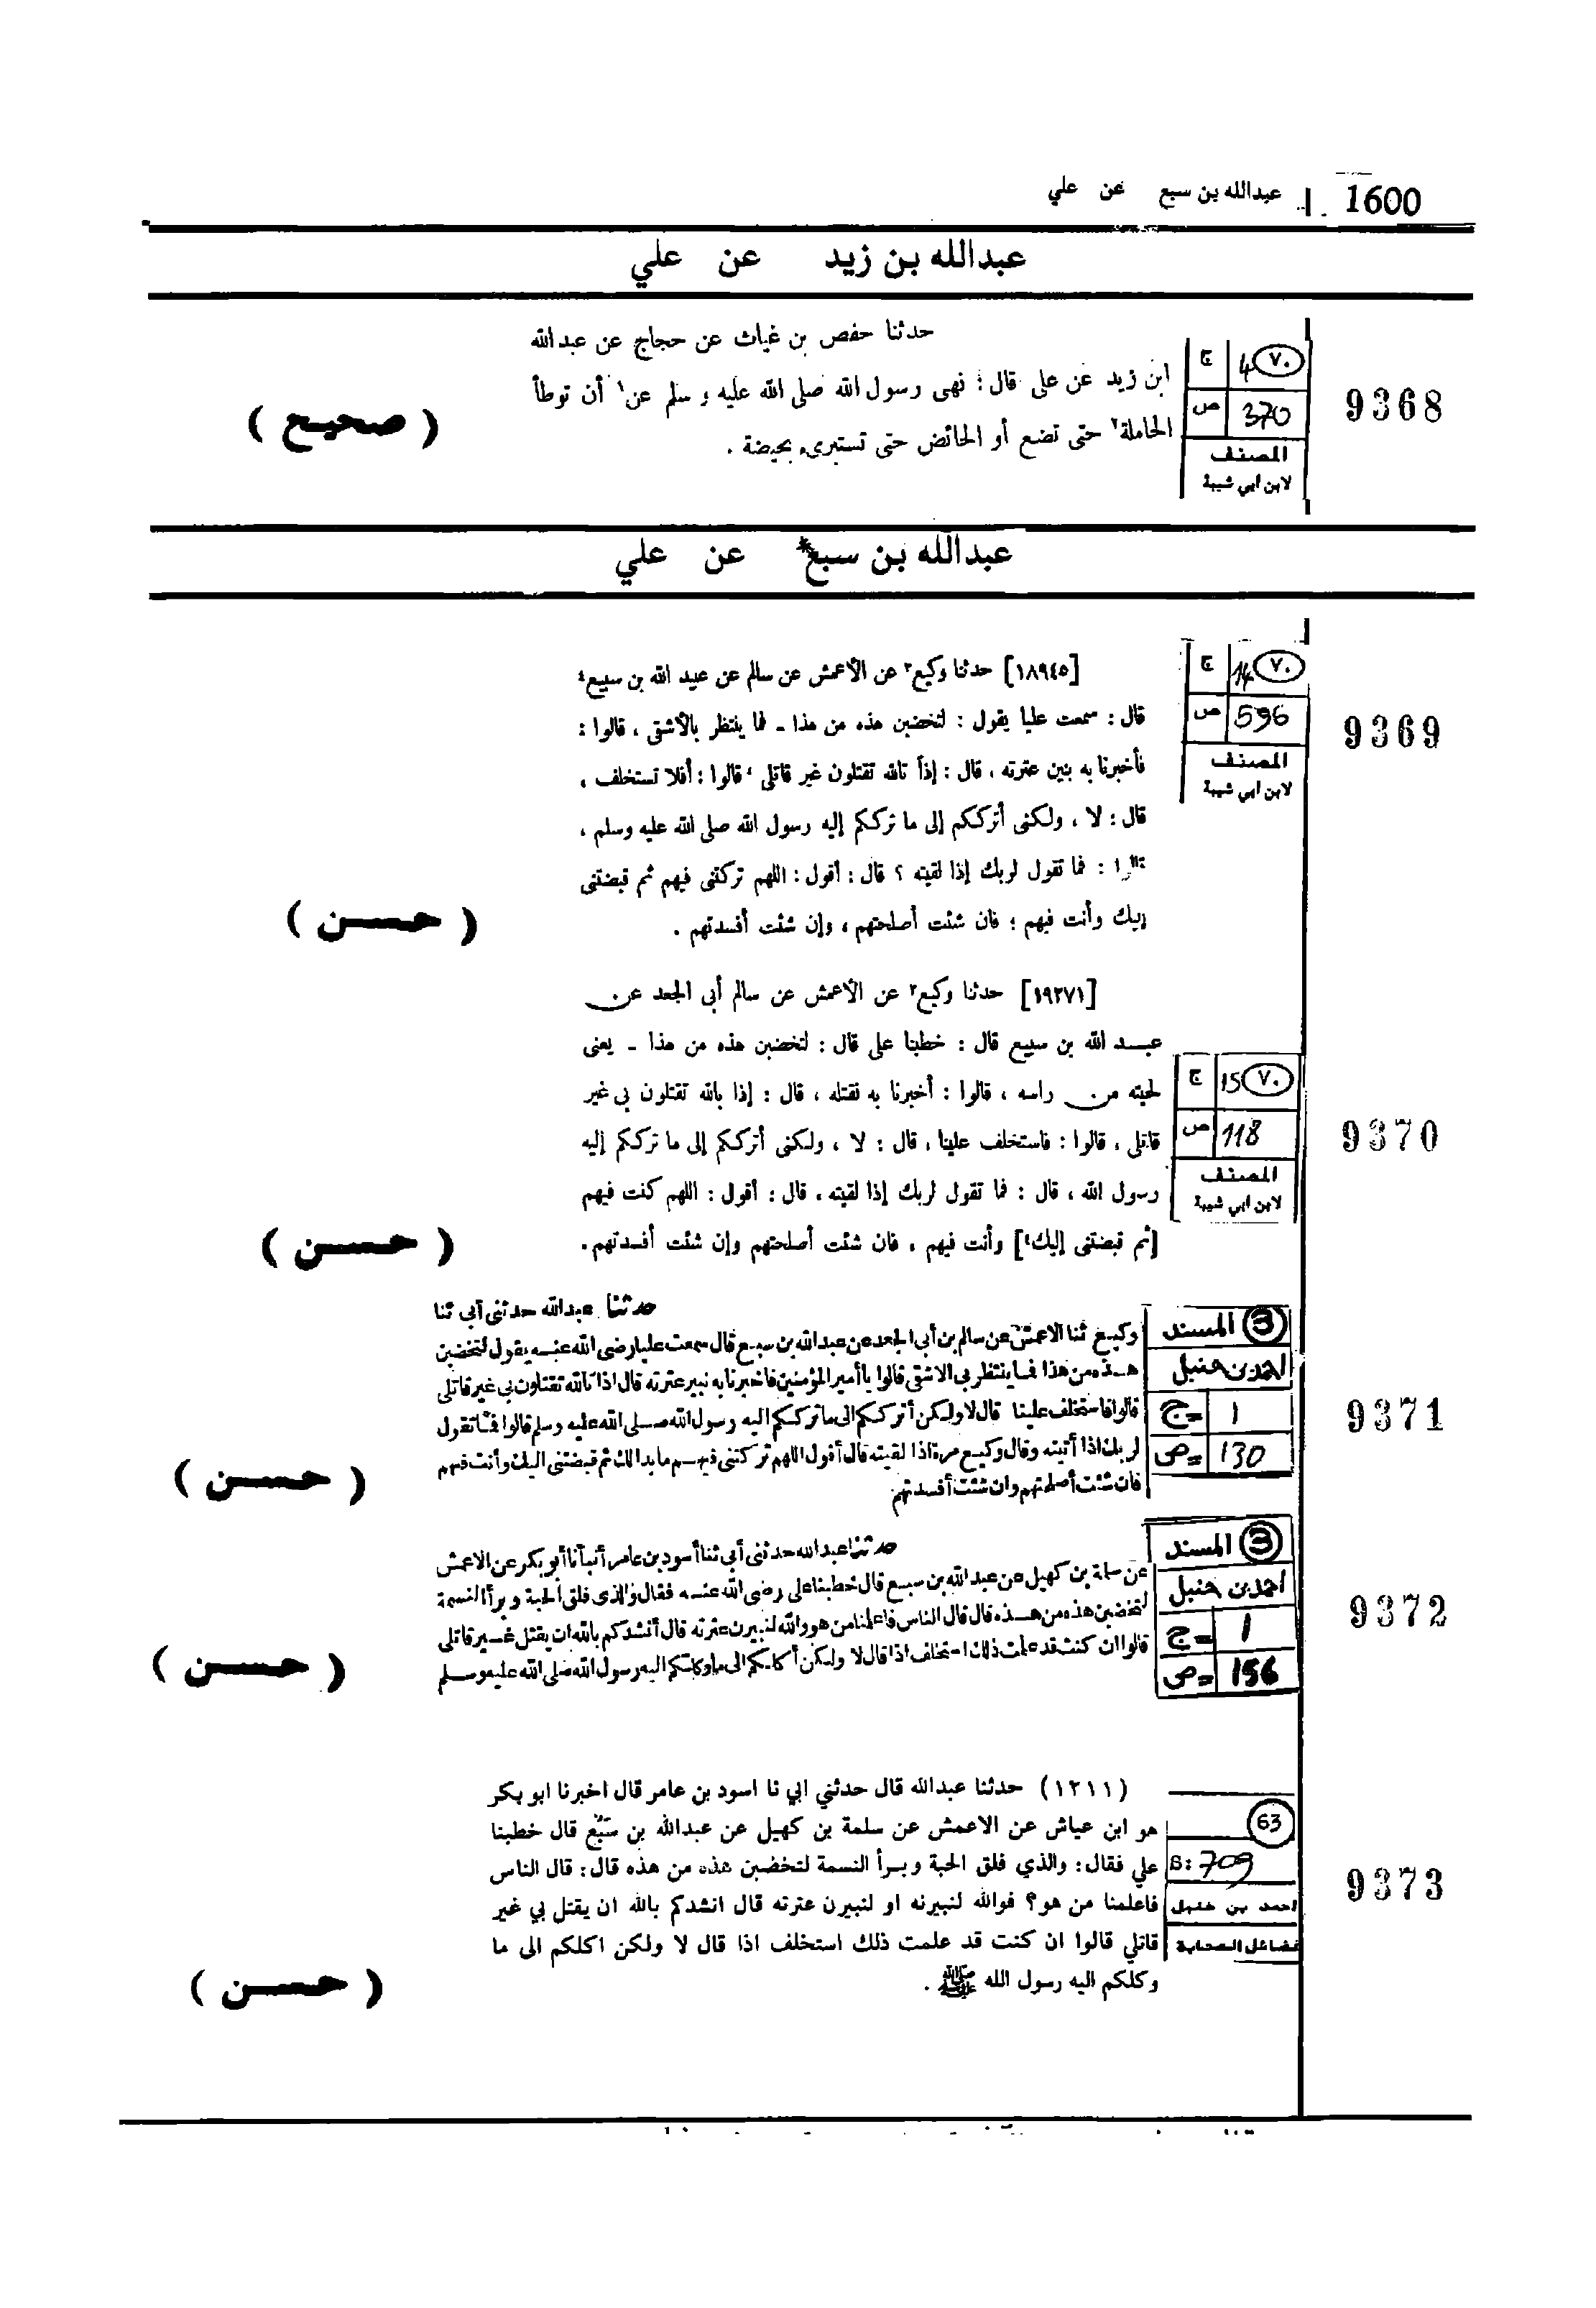 1600 عبدالله بن سبع عن علي
عبدالله بن زيد عن علي
9368
ج 4 ٧٠
ص 370
المصنف
لابن أبي شيبة
حدثنا حفص بن غياث عن حجاج عن عبد الله
ابن زيد عن على قال: نهى رسول الله صلى الله عليه و سلم عن١ أن توطأ
الحاملة٢ حتى تضع أو الحائض حتى تستبرىء بحيضة .
( صحيح )
عبدالله بن سبع* عن علي
9369
ج 14 ٧٠
ص 596
المصنف
لابن ابي شيبة
[١٨٩٤٥] حدثنا وكيع٣ عن الأعمش عن سالم عن عبد الله بن سبيع٤
قال : سمعت عليا يقول : لتخضبن هذه من هذا ـ فما ينتظر بالأشقى ، قالوا :
فأخبرنا به بنين عترته ، قال : إذاً تالله تقتلون غير قاتلى ، قالوا : أفلا تستخلف ،
قال : لا ، ولكنى أترككم إلى ما ترككم إليه رسول الله صلى الله عليه وسلم ،
قالوا : فما تقول لربك إذا لقيته ؟ قال : أقول : اللهم تركتنى فيهم ثم قبضتنى
إليك وأنت فيهم ؛ فان شئت أصلحتهم ، وإن شئت أفسدتهم .
( حسن )
9370
ج 15 ٧٠
ص 118
المصنف
لابن ابي شيبة
[١٩٢٧١] حدثنا وكيع٢ عن الأعمش عن سالم أبي الجعد عن
عبد الله بن سبيع قال : خطبنا على قال : لتخضبن هذه من هذا ـ يعنى
لحيته من راسه ، قالوا : أخبرنا به نقتله ، قال : إذا بالله تقتلون بى غير
قاتلى ، قالوا : فاستخلف علينا ، قال : لا ، ولكنى أترككم إلى ما ترككم إليه
رسول الله ، قال : فما تقول لربك إذا لقيته ، قال : أقول : اللهم كنت فيهم
[ثم قبضتنى إليك٤] وأنت فيهم ، فان شئت أصلحتهم وإن شئت أفسدتهم .
( حسن )
9371
3 المسند
احمد بن حنبل
ج= 1
ص= 130
حدثنا عبدالله حدثنى أبي ثنا
وكيع ثنا الاعمش عن سالم بن أبي الجعد عن عبدالله بن سبع قال سمعت عليا رضى الله عنه يقول لتخضبن
هذه من هذا فما ينتظر بى الاشقى قالوا يا أمير المؤمنين فاخبرنا به نبير عترته قال اذا تالله تقتلون بى غير قاتلى
قالوا فاستخلف علينا قال لا ولكن أترككم الى ما ترككم اليه رسول الله صلى الله عليه وسلم قالوا فما تقول
لربك اذا أتيته وقال وكيع مرة اذا لقيته قال أقول اللهم تركتنى فيهم ما بدا لك ثم قبضتنى اليك وأنت فيهم
فان شئت أصلحتهم وان شئت أفسدتهم
( حسن )
9372
3 المسند
احمد بن حنبل
ج= 1
ص= 156
حدثنا عبدالله حدثنى أبي ثنا أسود بن عامر أنبأنا أبو بكر عن الاعمش
عن سلمة بن كهيل عن عبدالله بن سبيع قال خطبنا على رضى الله عنه فقال والذى فلق الحبة وبرأ النسمة
لتخضبن هذه من هذه قال قال الناس فاعلمنا من هو والله لنبيرن عترته قال أنشدكم بالله ان يقتل غير قاتلى
قالوا ان كنت قد علمت ذلك استخلف اذا قال لا ولكن أكلكم الى ما وكلكم اليه رسول الله صلى الله عليه وسلم
( حسن )
9373
63
S: 709
احمد بن حنبل
فضائل الصحابة
(١٢١١) حدثنا عبدالله قال حدثني ابي نا اسود بن عامر قال اخبرنا ابو بكر
هو ابن عياش عن الاعمش عن سلمة بن كهيل عن عبدالله بن سَبُع قال خطبنا
علي فقال: والذي فلق الحبة وبرأ النسمة لتخضبن هذه من هذه قال: قال الناس
فاعلمنا من هو؟ فوالله لنبيرنه او لنبيرن عترته قال انشدكم بالله ان يقتل بي غير
قاتلي قالوا ان كنت قد علمت ذلك استخلف اذا قال لا ولكن اكلكم الى ما
وكلكم اليه رسول الله ﷺ .
( حسن )